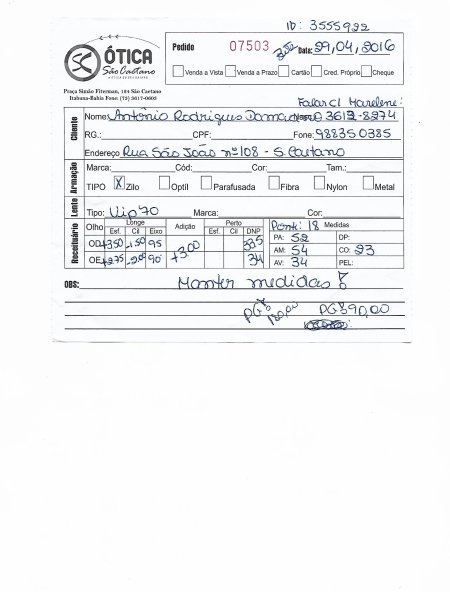 ID: 3555922
ÓTICA
São Caetano
Pedido 07503 350 Data: 29,04,2016
Venda a Vista Venda a Prazo Cartão Cred. Próprio Cheque
Praça Simão Fiterman, 184 São Caetano
Itabuna-Bahia Fone: (73) 3617-0605
Falar c/ Marelene:
Cliente
Nome: Antônio Rodrigues 3612-8274
RG.: CPF: Fone: 988350385
Endereço Rua São João nº 108 - S. Caetano
Armação
Marca: Cód: Cor: Tam.:
TIPO X Zilo Optil Parafusada Fibra Nylon Metal
Lente
Tipo: Vip 70 Marca: Cor:
Receituário
Olho Longe Adição Perto Pont: 18 Medidas
Esf. Cil Eixo Esf. Cil DNP PA: 52 DP:
OD +3,50 -1,50 95 +3,00 33,5 AM: 54 CO: 23
OE +2,75 -2,00 90 34 AV: 34 PEL:
OBS: Manter medidas!
PG 180,00 PG 90,00